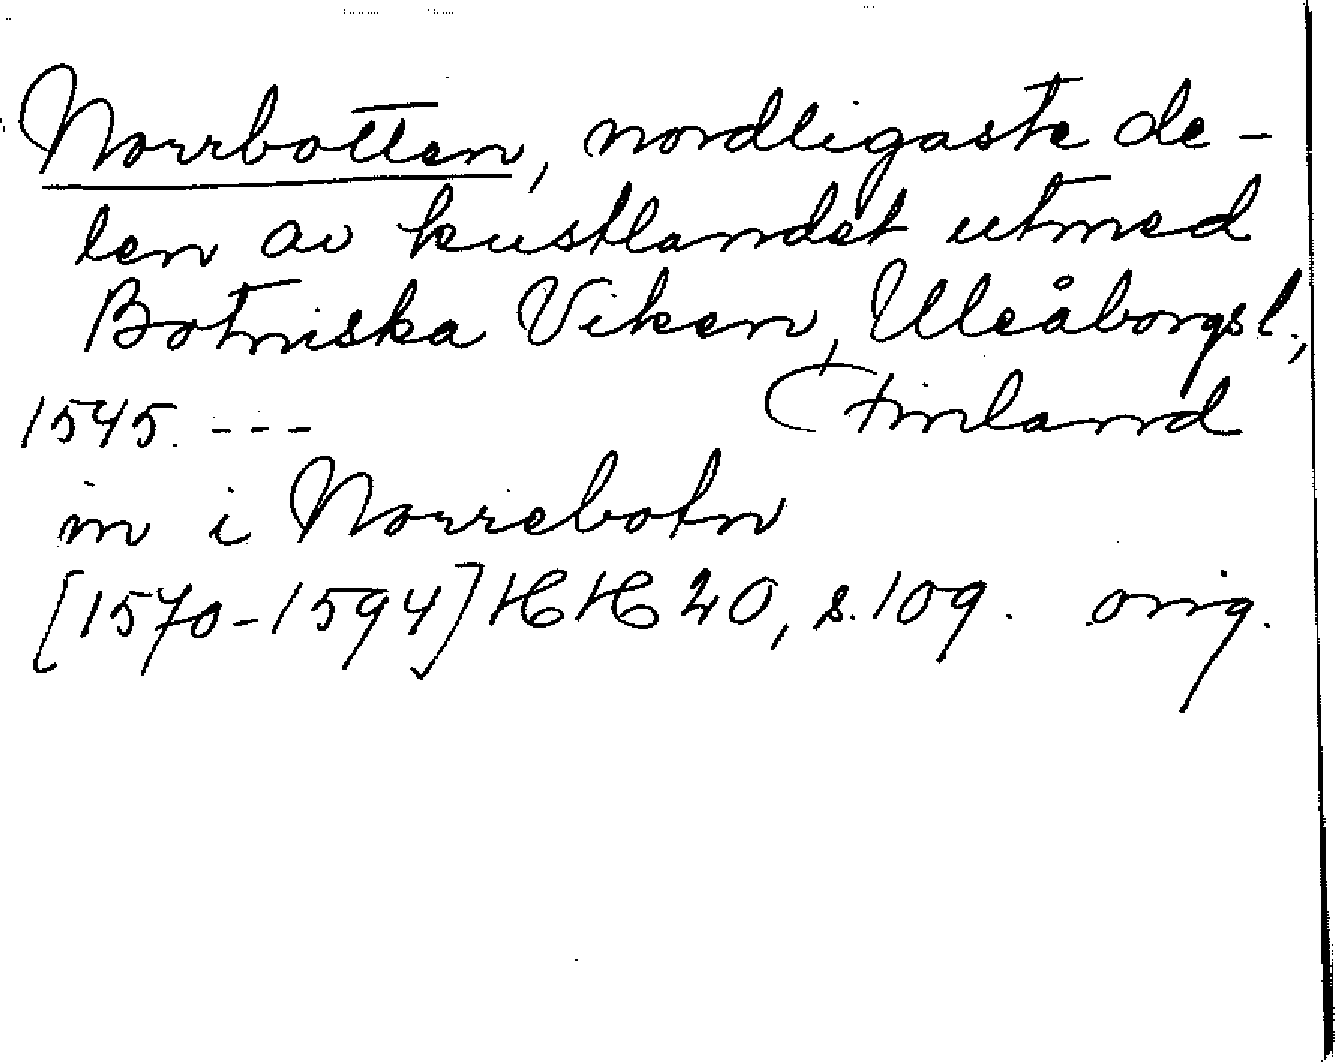 Norrbotten, nordligaste de-
len av kustlandet utmed
Botniska Viken, Uleåborgsl.,
1545. --- Finland
in i Norrebotn
[1570-1594] HH 20, s. 109. orig.